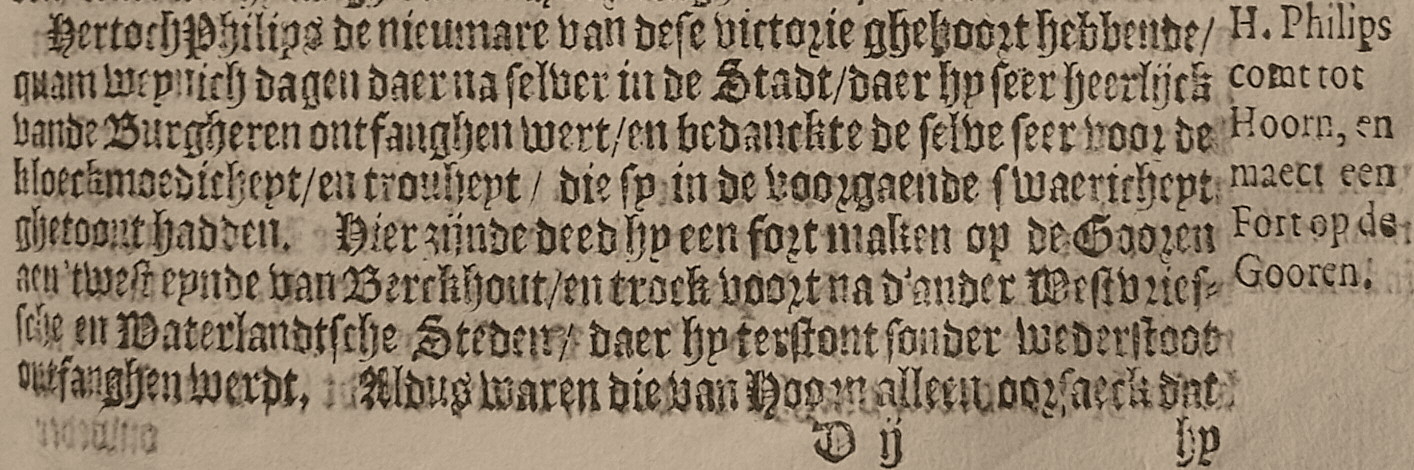 Hertoch Philips de nieumare van dese victorie ghehoort hebbende/
quam weynich dagen daer na selver in de Stadt/daer hy seer heerlijck
vande Burgheren ontfanghen wert/en bedanckte de selve seer voor de
kloeckmoedicheyt/en trouheyt / die sy in de voorgaende swaericheyt
ghetoont hadden. Hier zijnde deed hy een fort maken op de Gooren
aen 'twest eynde van Berckhout/en trock voort na d'ander Westvries-
sche en Waterlandtsche Steden/ daer hy terstont sonder wederstoot
ontfanghen werdt. Aldus waren die van Hoorn alleen oorsaeck dat
D ij
hy
H. Philips
comt tot
Hoorn, en
maect een
Fort op de
Gooren.